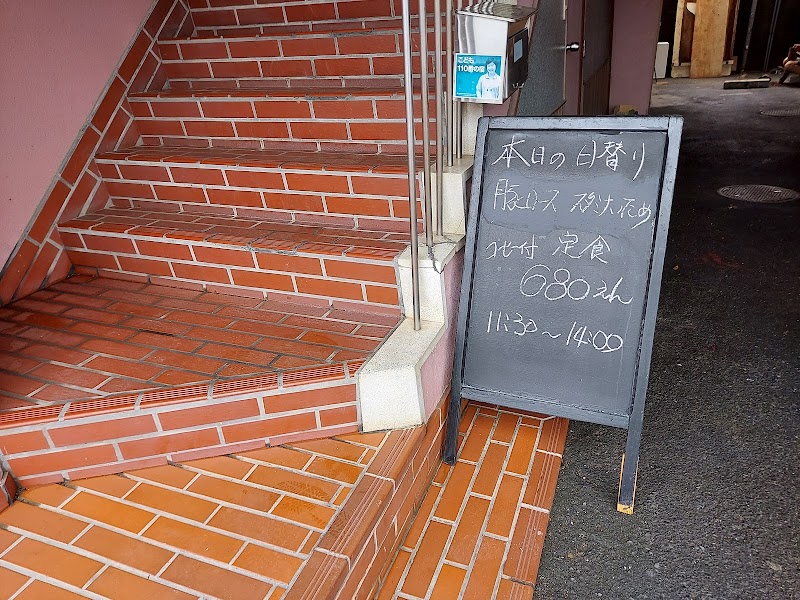 こども
110番の家
本日の日替り
豚ロース スタミナ炒め
コーヒー付 定食
680えん
11:30～14:00